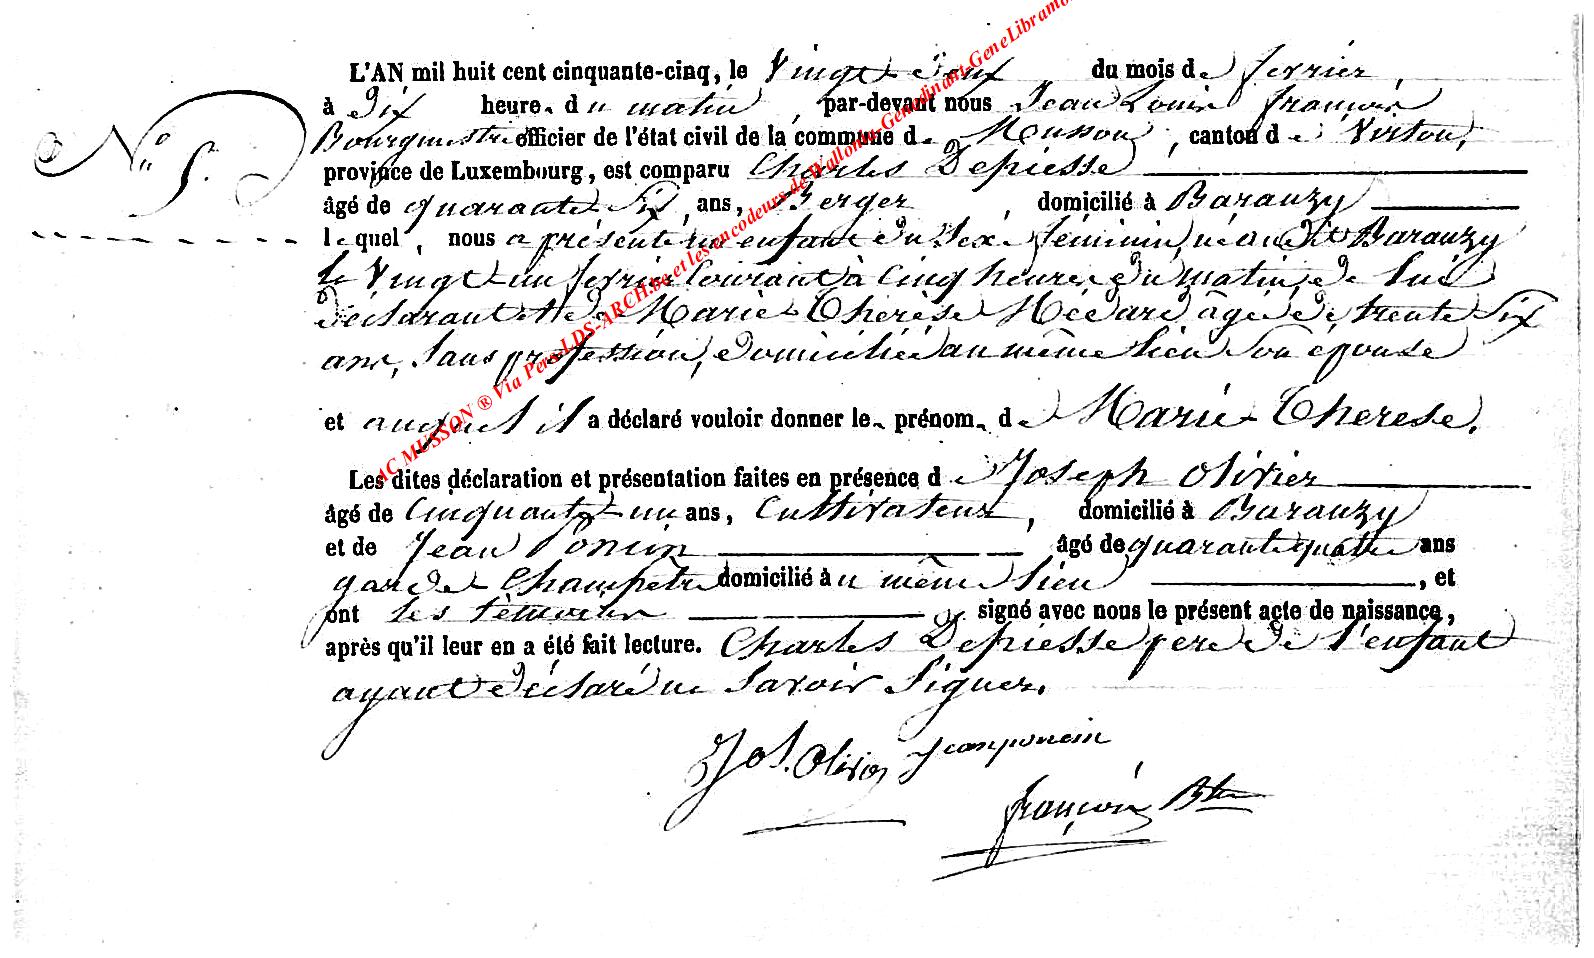 L'AN mil huit cent cinquante-cinq, le Vingt deux du mois de fevrier,
à Dix heures du matin, par-devant nous Jean Louis françois
N° 5. Bourgmestre officier de l'état civil de la commune de Musson, canton de Virton,
province de Luxembourg, est comparu Charles Depiesse
âgé de quarante Six, ans, Berger, domicilié à Baranzy
lequel, nous a présenté un enfant du Sexe féminin, né au dit Baranzy
le Vingt un fevrier Courant à Cinq heures du matin, de lui
déclarant et de Marie Thérèse Médard âgée de trente Six
ans, Sans profession, domiciliée au même lieu Son épouse
et auquel il a déclaré vouloir donner les prénoms de Marie Therese.
Les dites déclaration et présentation faites en présence de Joseph Olivier
âgé de Cinquante un ans, Cultivateur, domicilié à Baranzy
et de Jean Poncin âgé de quarante quatre ans
garde Champêtre domicilié au même lieu, et
ont les témoins signé avec nous le présent acte de naissance,
après qu'il leur en a été fait lecture. Charles Depiesse pere de l'enfant
ayant déclaré ne Savoir Signer.
Jos. Olivier Jean poncin
françois Btre
AC MUSSON ® Via Pers LDS-ARCH.be et les encodeurs de Wallonia-Genedinant-GeneLibramo